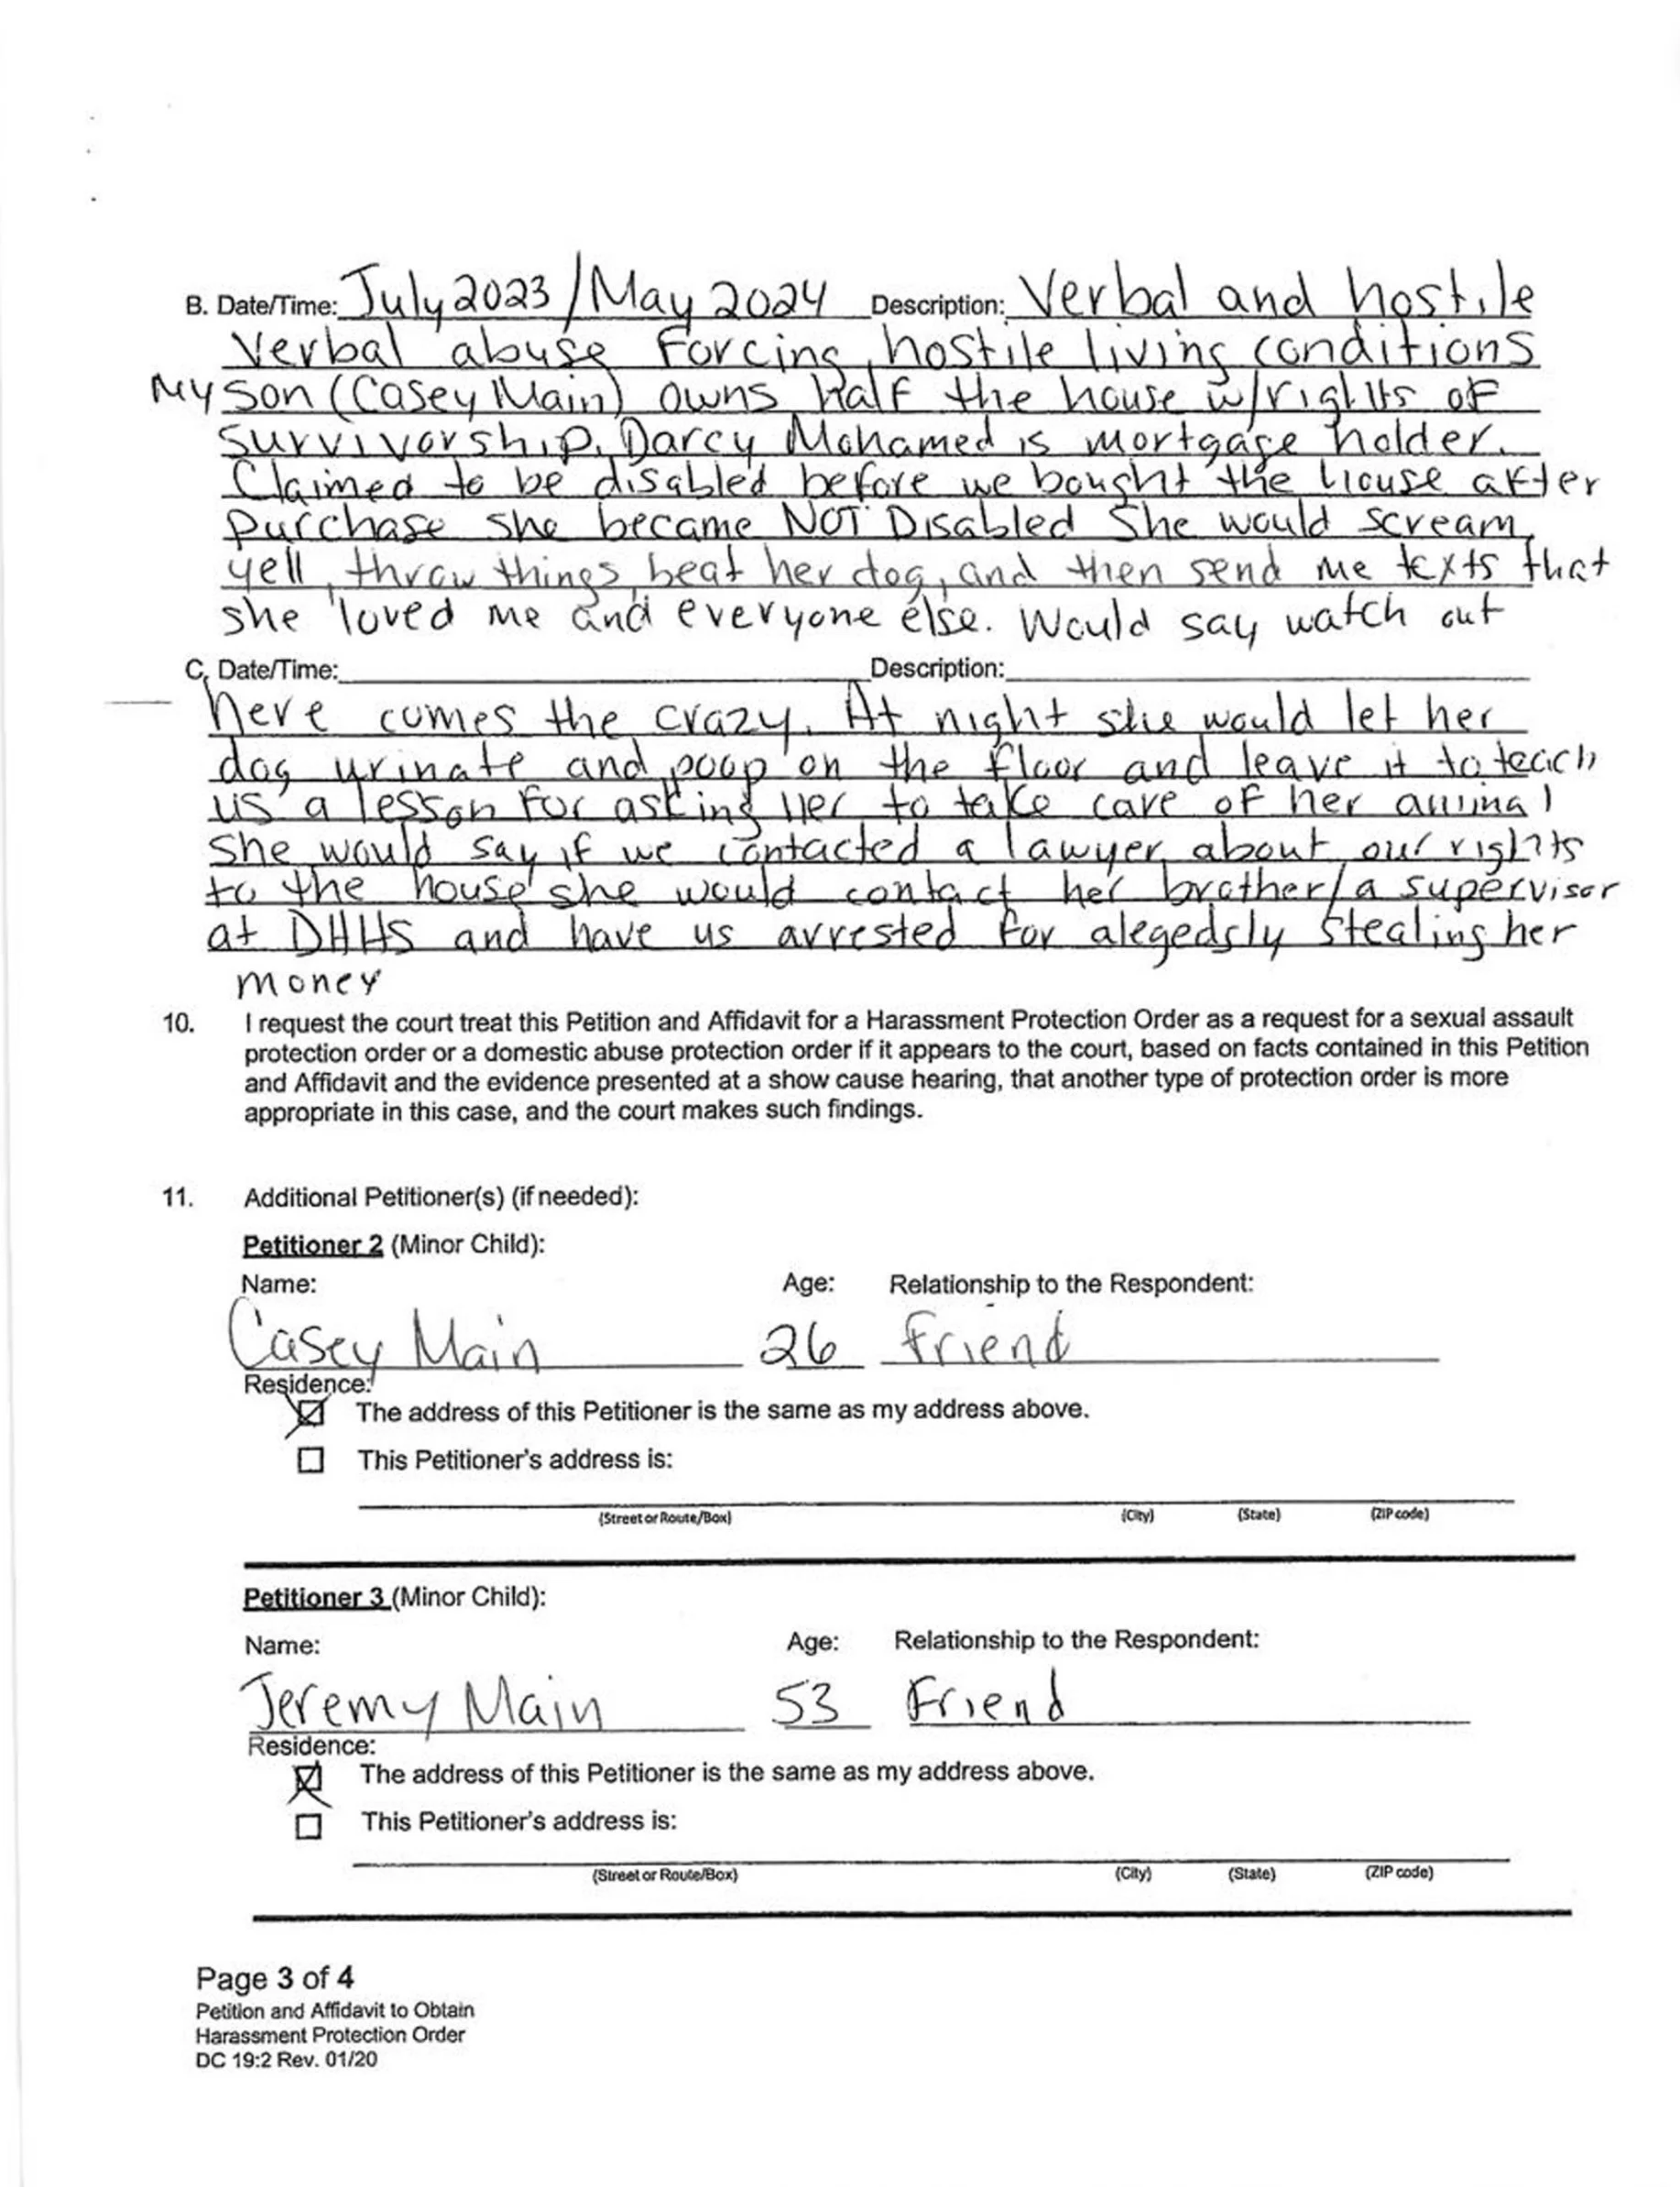 B. Date/Time: July 2023 / May 2024 Description: Verbal and hostile
Verbal abuse Forcing hostile living conditions
My son (Casey Main) owns half the house w/rights of
survivorship. Darcy Mohamed is mortgage holder.
Claimed to be disabled before we bought the house after
purchase she became NOT Disabled She would scream,
yell, throw things, beat her dog, and then send me texts that
she loved me and everyone else. Would say watch out
C. Date/Time: Description:
here comes the crazy. At night she would let her
dog urinate and poop on the floor and leave it to teach
us a lesson for asking her to take care of her animal
She would say if we contacted a lawyer about our rights
to the house she would contact her brother/a supervisor
at DHHS and have us arrested for alegedsly stealing her
money
10. I request the court treat this Petition and Affidavit for a Harassment Protection Order as a request for a sexual assault
protection order or a domestic abuse protection order if it appears to the court, based on facts contained in this Petition
and Affidavit and the evidence presented at a show cause hearing, that another type of protection order is more
appropriate in this case, and the court makes such findings.
11. Additional Petitioner(s) (if needed):
Petitioner 2 (Minor Child):
Name: Age: Relationship to the Respondent:
Casey Main 26 Friend
Residence:
The address of this Petitioner is the same as my address above.
This Petitioner's address is:
(Street or Route/Box) (City) (State) (ZIP code)
Petitioner 3 (Minor Child):
Name: Age: Relationship to the Respondent:
Jeremy Main 53 Friend
Residence:
The address of this Petitioner is the same as my address above.
This Petitioner's address is:
(Street or Route/Box) (City) (State) (ZIP code)
Page 3 of 4
Petition and Affidavit to Obtain
Harassment Protection Order
DC 19:2 Rev. 01/20